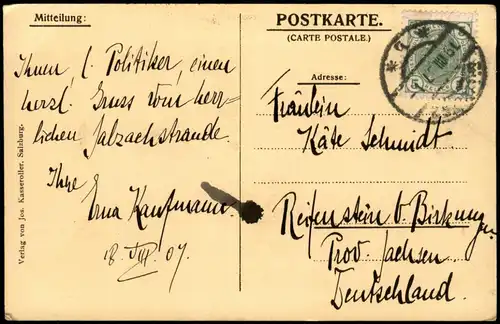 Mitteilung:
POSTKARTE.
(CARTE POSTALE.)
Adresse:
Ihnen, l. Politiker, einen
herzl. Gruss vom herr-
lichen Salzachstrande.
Ihre
Erna Kaufmann.
8. VIII. 07.
Fräulein
Käte Schmidt
Reifenstein b. Birkungen
Prov. Sachsen
Deutschland.
Verlag von Jos. Kasseroller, Salzburg.